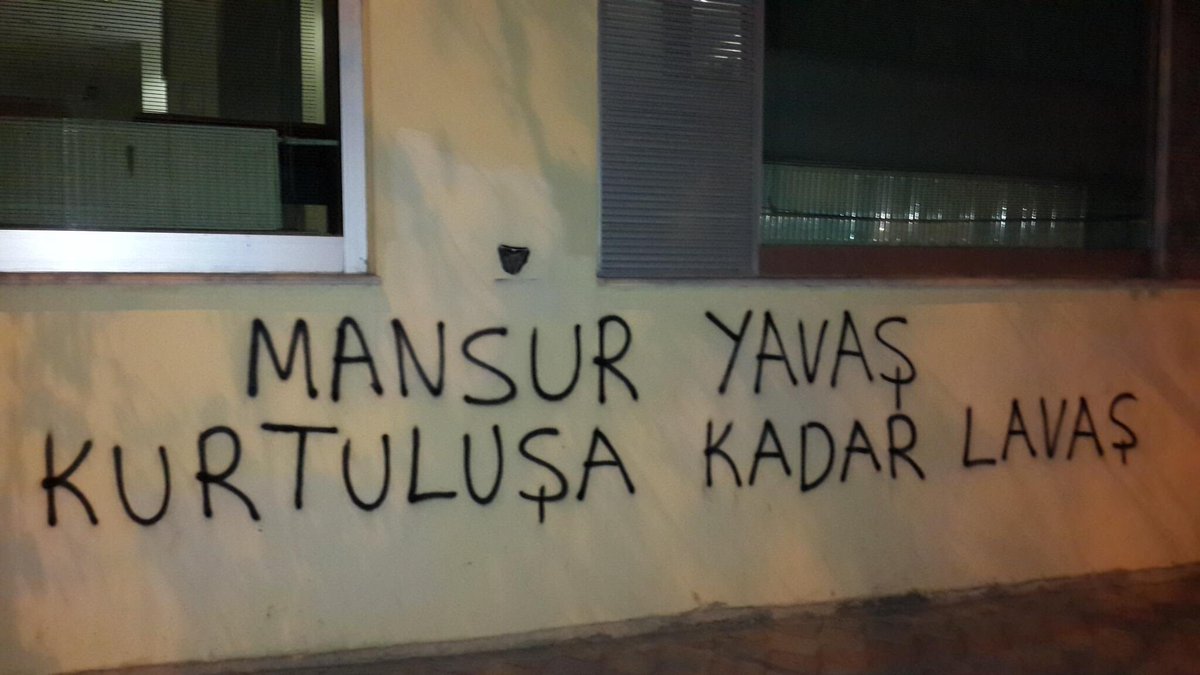 MANSUR YAVAŞ
KURTULUŞA KADAR LAVAŞ